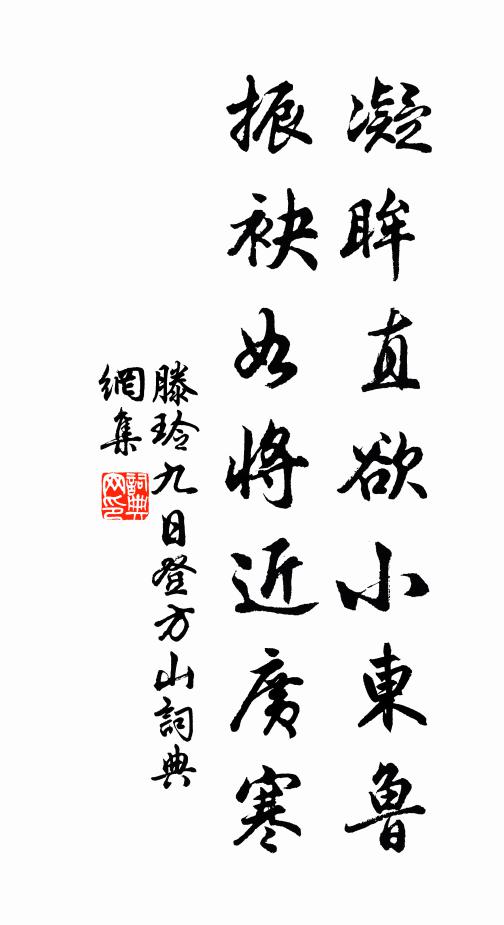 凝眸直欲小東魯
振袂如將近廣寒
滕玲九日登方山詞典
網集
詞典
网印